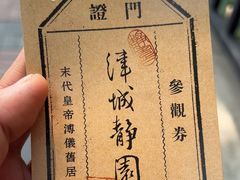 證門
參觀券
津城静園
末代皇帝溥儀舊居